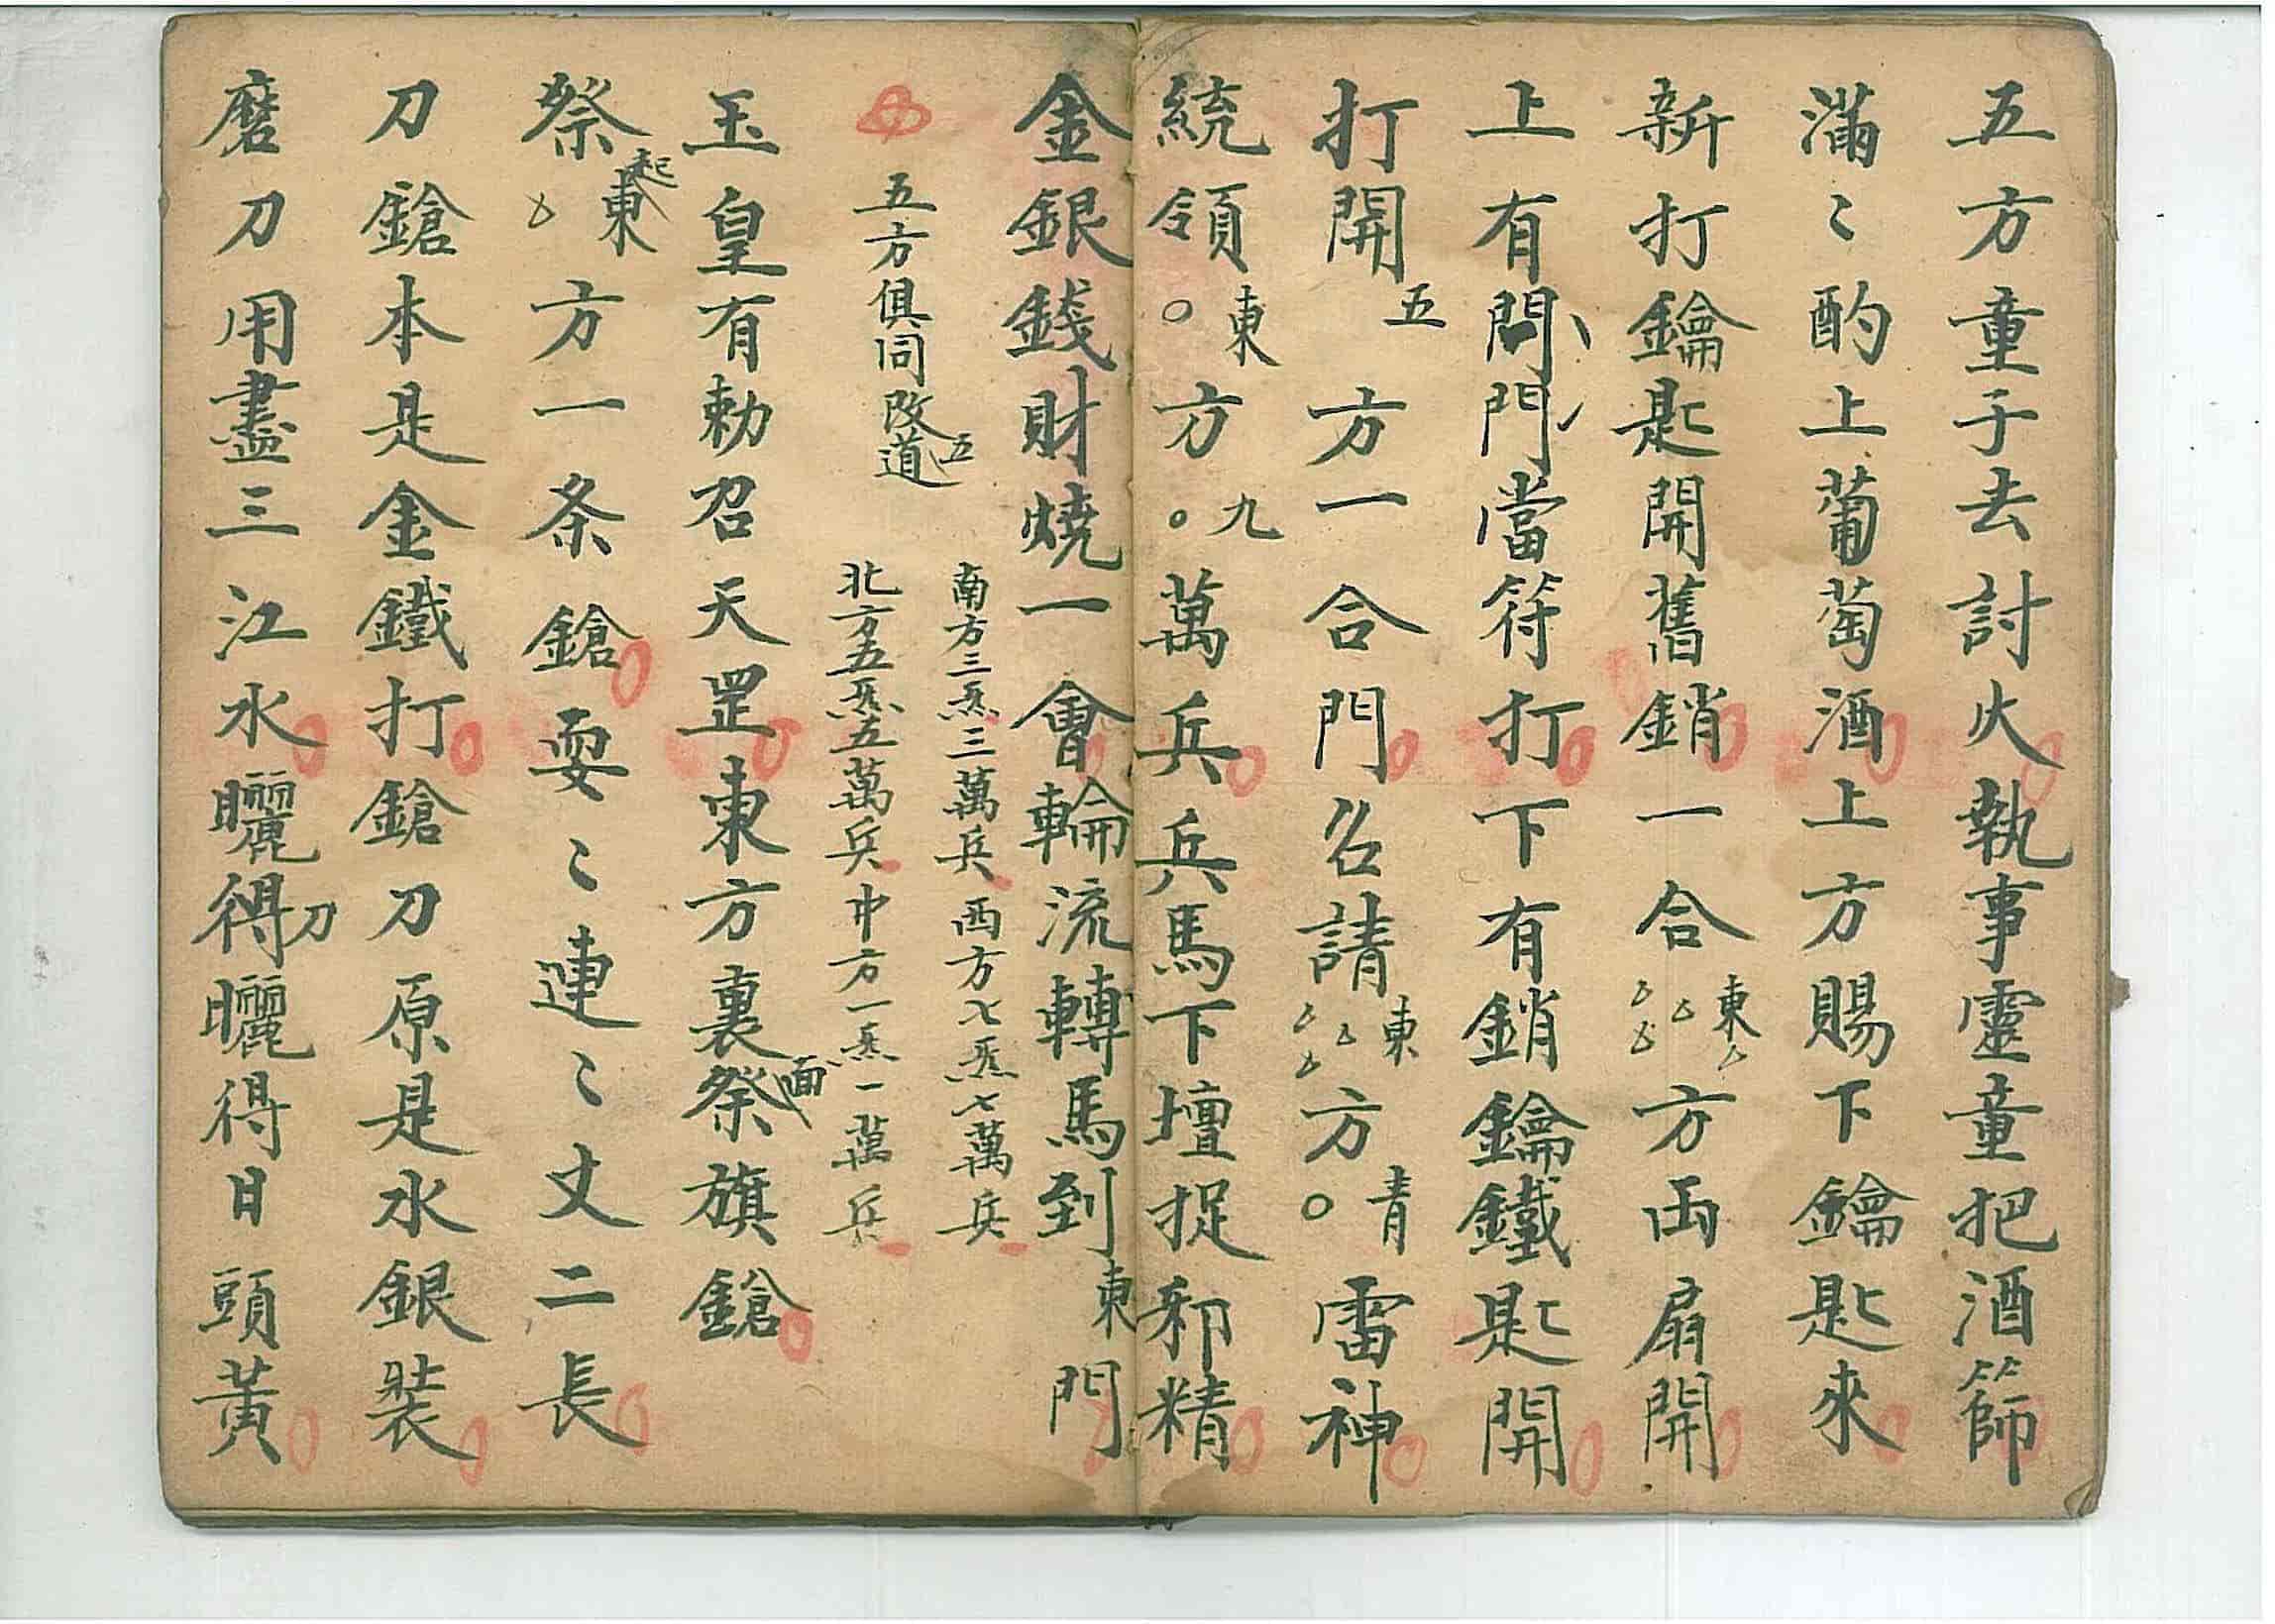 五方童子去討火執事靈童把酒篩
滿〻酌上葡萄酒上方賜下鑰匙來
新打鑰匙開舊銷一合東方両扇開
上有門門當符打下有銷鑰鐵匙開
打開五方一合門名請東方青雷神
統領東方九萬兵兵馬下壇捉邪精
金銀錢財燒一會輪流轉馬到東門
五方俱同改五道
南方三炁三萬兵西方七炁七萬兵
北方五炁五萬兵中方一炁一萬兵
玉皇有勅召天罡東方裏面祭旗鎗
祭起東方一条鎗耍〻連〻丈二長
刀鎗本是金鐵打鎗刀原是水銀裝
磨刀用盡三江水曬得刀曬得日頭黃